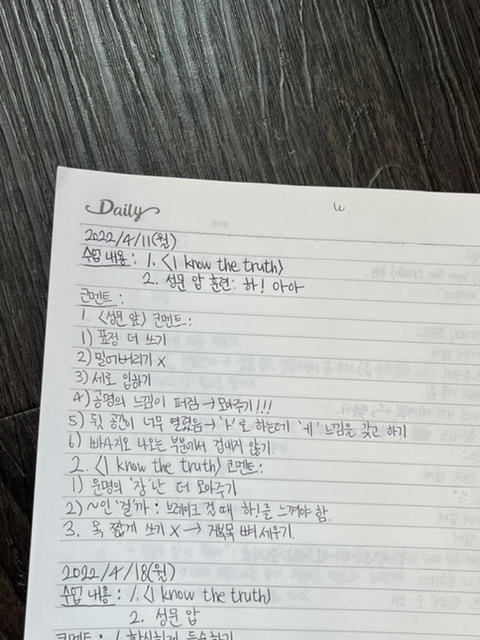 Daily
2022/4/11(월)
수업 내용 : 1. <I know the truth>
2. 성문 압 훈련: 하! 아아
코멘트 :
1. <성문 압> 코멘트 :
1) 표정 더 쓰기
2) 밀어버리기 x
3) 세로 입하기
4) 공명의 느낌이 퍼짐 → 모아주기!!!
5) 뒷 공간이 너무 열렸음 → 'ㅏ'로 하는데 'ㅔ' 느낌을 갖고 하기
6) 빠사지오 나오는 부분에서 겁내지 않기.
2. <I know the truth> 코멘트 :
1) 운명의 '장'난 더 모아주기
2) ~인 '걸'까 : 브레이크 걸 때 하!를 느껴야 함.
3. 목 짧게 쓰기 X → 거북목 뼈 세우기.
2022/4/18(월)
수업 내용 : 1. <I know the truth>
2. 성문 압
코멘트 : 1.